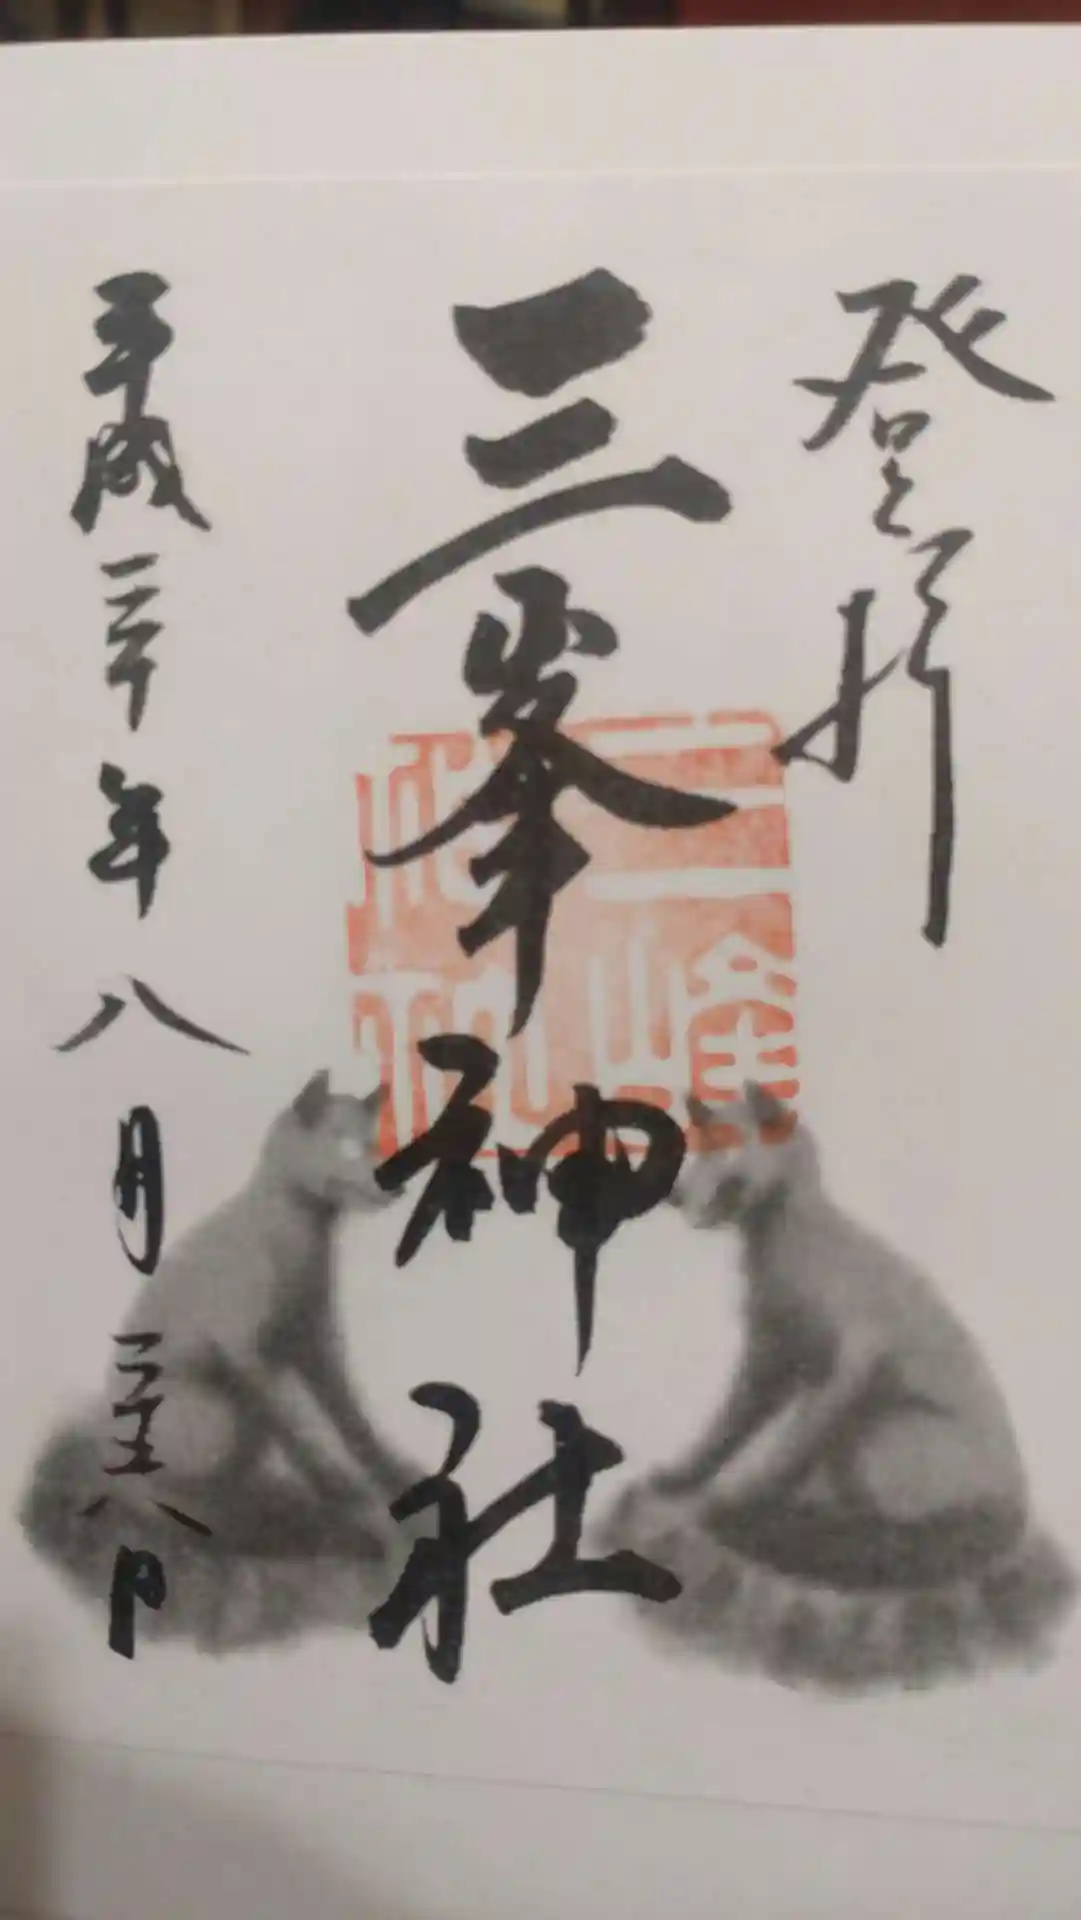 登拝
三峯神社
平成三十年八月二十六日
三峰
神社